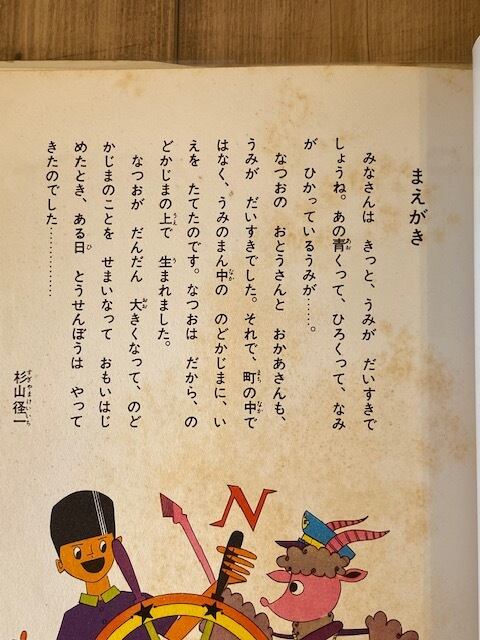 まえがき
みなさんは きっと、うみが だいすきで
しょうね。あの青くって、ひろくって、なみ
が ひかっているうみが……。
なつおの おとうさんと おかあさんも、
うみが だいすきでした。それで、町の中で
はなく、うみのまん中の のどかじまに、い
えを たてたのです。なつおは だから、の
どかじまの上で 生まれました。
なつおが だんだん 大きくなって、のど
かじまのことを せまいなって おもいはじ
めたとき、ある日 とうせんぼうは やって
きたのでした……………
杉山径一
N